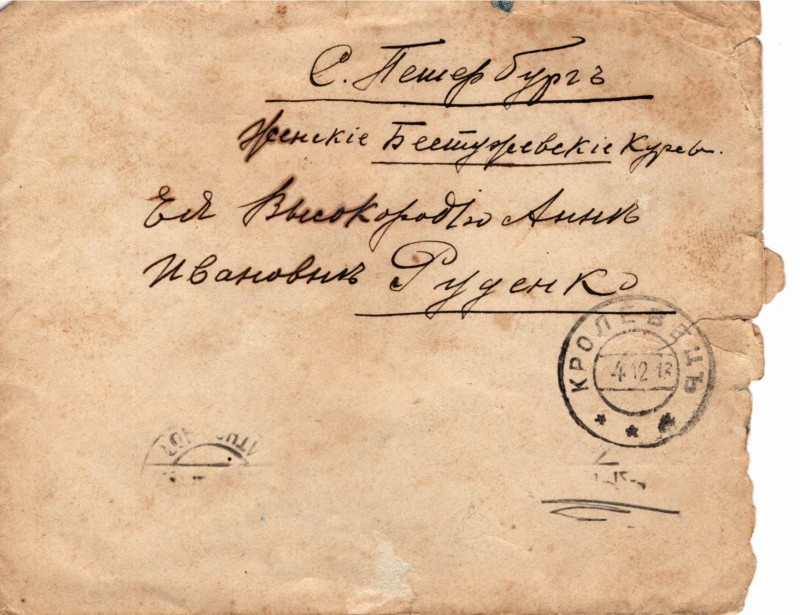 С. Петербургъ
Женскіе Бестужевскіе Курсы.
Ея Высокородію Аннѣ
Ивановнѣ Руденко
КРОЛЕВЕЦЪ
4.12.12